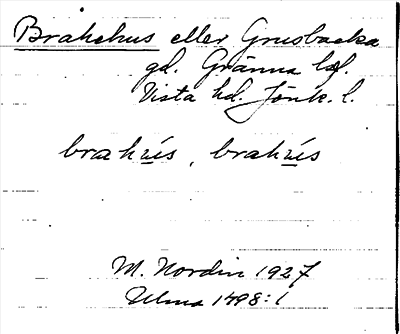 Brahehus eller Grusbacka
gd. Gränna lfs.
Vista hd. Jönk. l.
brahús, brahús
M. Nordin 1927
Ulma 1498:1